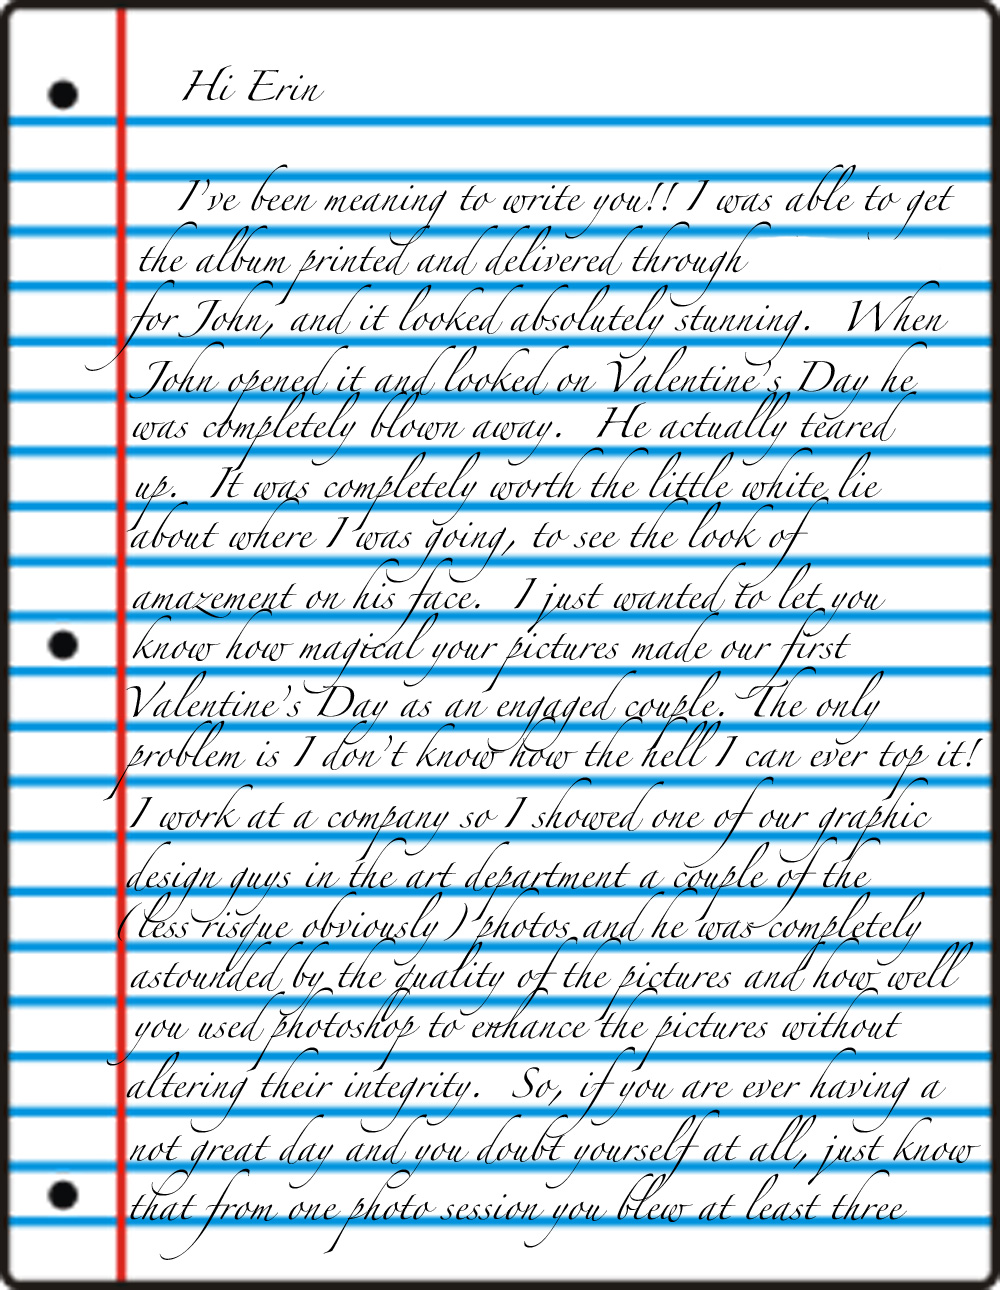 Hi Erin
I've been meaning to write you!! I was able to get
the album printed and delivered through
for John, and it looked absolutely stunning. When
John opened it and looked on Valentine's Day he
was completely blown away. He actually teared
up. It was completely worth the little white lie
about where I was going, to see the look of
amazement on his face. I just wanted to let you
know how magical your pictures made our first
Valentine's Day as an engaged couple. The only
problem is I don't know how the hell I can ever top it!
I work at a company so I showed one of our graphic
design guys in the art department a couple of the
(less risque obviously) photos and he was completely
astounded by the quality of the pictures and how well
you used photoshop to enhance the pictures without
altering their integrity. So, if you are ever having a
not great day and you doubt yourself at all, just know
that from one photo session you blew at least three